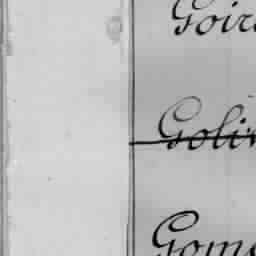 Goir
Golin
Gome